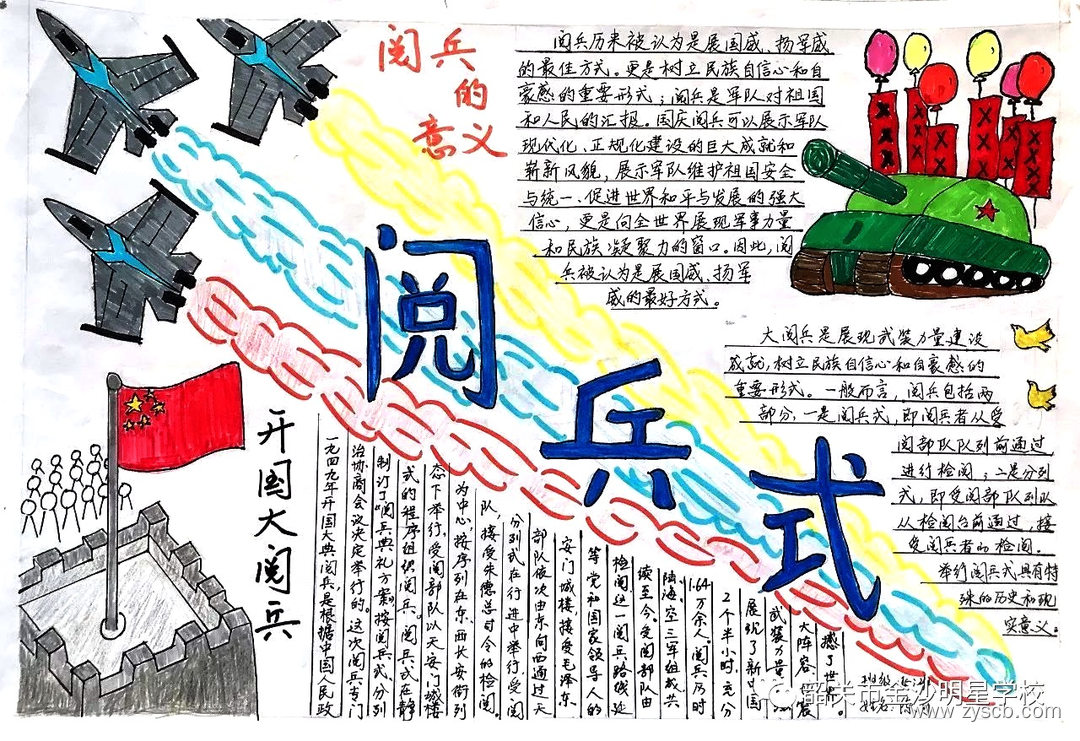 阅兵
的
意义
阅兵历来被认为是展国威、扬军威
的最佳方式。更是树立民族自信心和自
豪感的重要形式；阅兵是军队对祖国
和人民的汇报。国庆阅兵可以展示军队
现代化、正规化建设的巨大成就和
崭新风貌，展示军队维护祖国安全
与统一、促进世界和平与发展的强大
信心，更是向全世界展现军事力量
和民族凝聚力的窗口。因此，阅
兵被认为是展国威、扬军
威的最好方式。
阅兵式
大阅兵是展现武装力量建设
成就，树立民族自信心和自豪感的
重要形式。一般而言，阅兵包括两
部分，一是阅兵式，即阅兵者从受
阅部队队列前通过
进行检阅；二是分列
式，即受阅部队列队
从检阅台前通过，接
受阅兵者的检阅。
举行阅兵式具有特
殊的历史和现
实意义。
开国大阅兵
一九四九年开国大典阅兵，是根据中国人民政
治协商会议决定举行的。这次阅兵专门
制订了“阅兵典礼方案。按阅兵式、分列
式的程序组织阅兵。阅兵式在静
态下举行，受阅部队以天安门城楼
为中心，按序列在东、西长安街列
队，接受朱德总司令的检阅。
分列式在行进中举行，受阅
部队依次由东向西通过天
安门城楼，接受毛泽东
等党和国家领导人的
检阅，这一阅兵路线延
读至今。受阅部队由
陆海、空三军组成，共
1.64万余人。阅兵历时
2个半小时，充分
展现了新中国
武装力量
大阵容，震
撼了世界。
韶关市金沙明星学校
www.zyscb.com